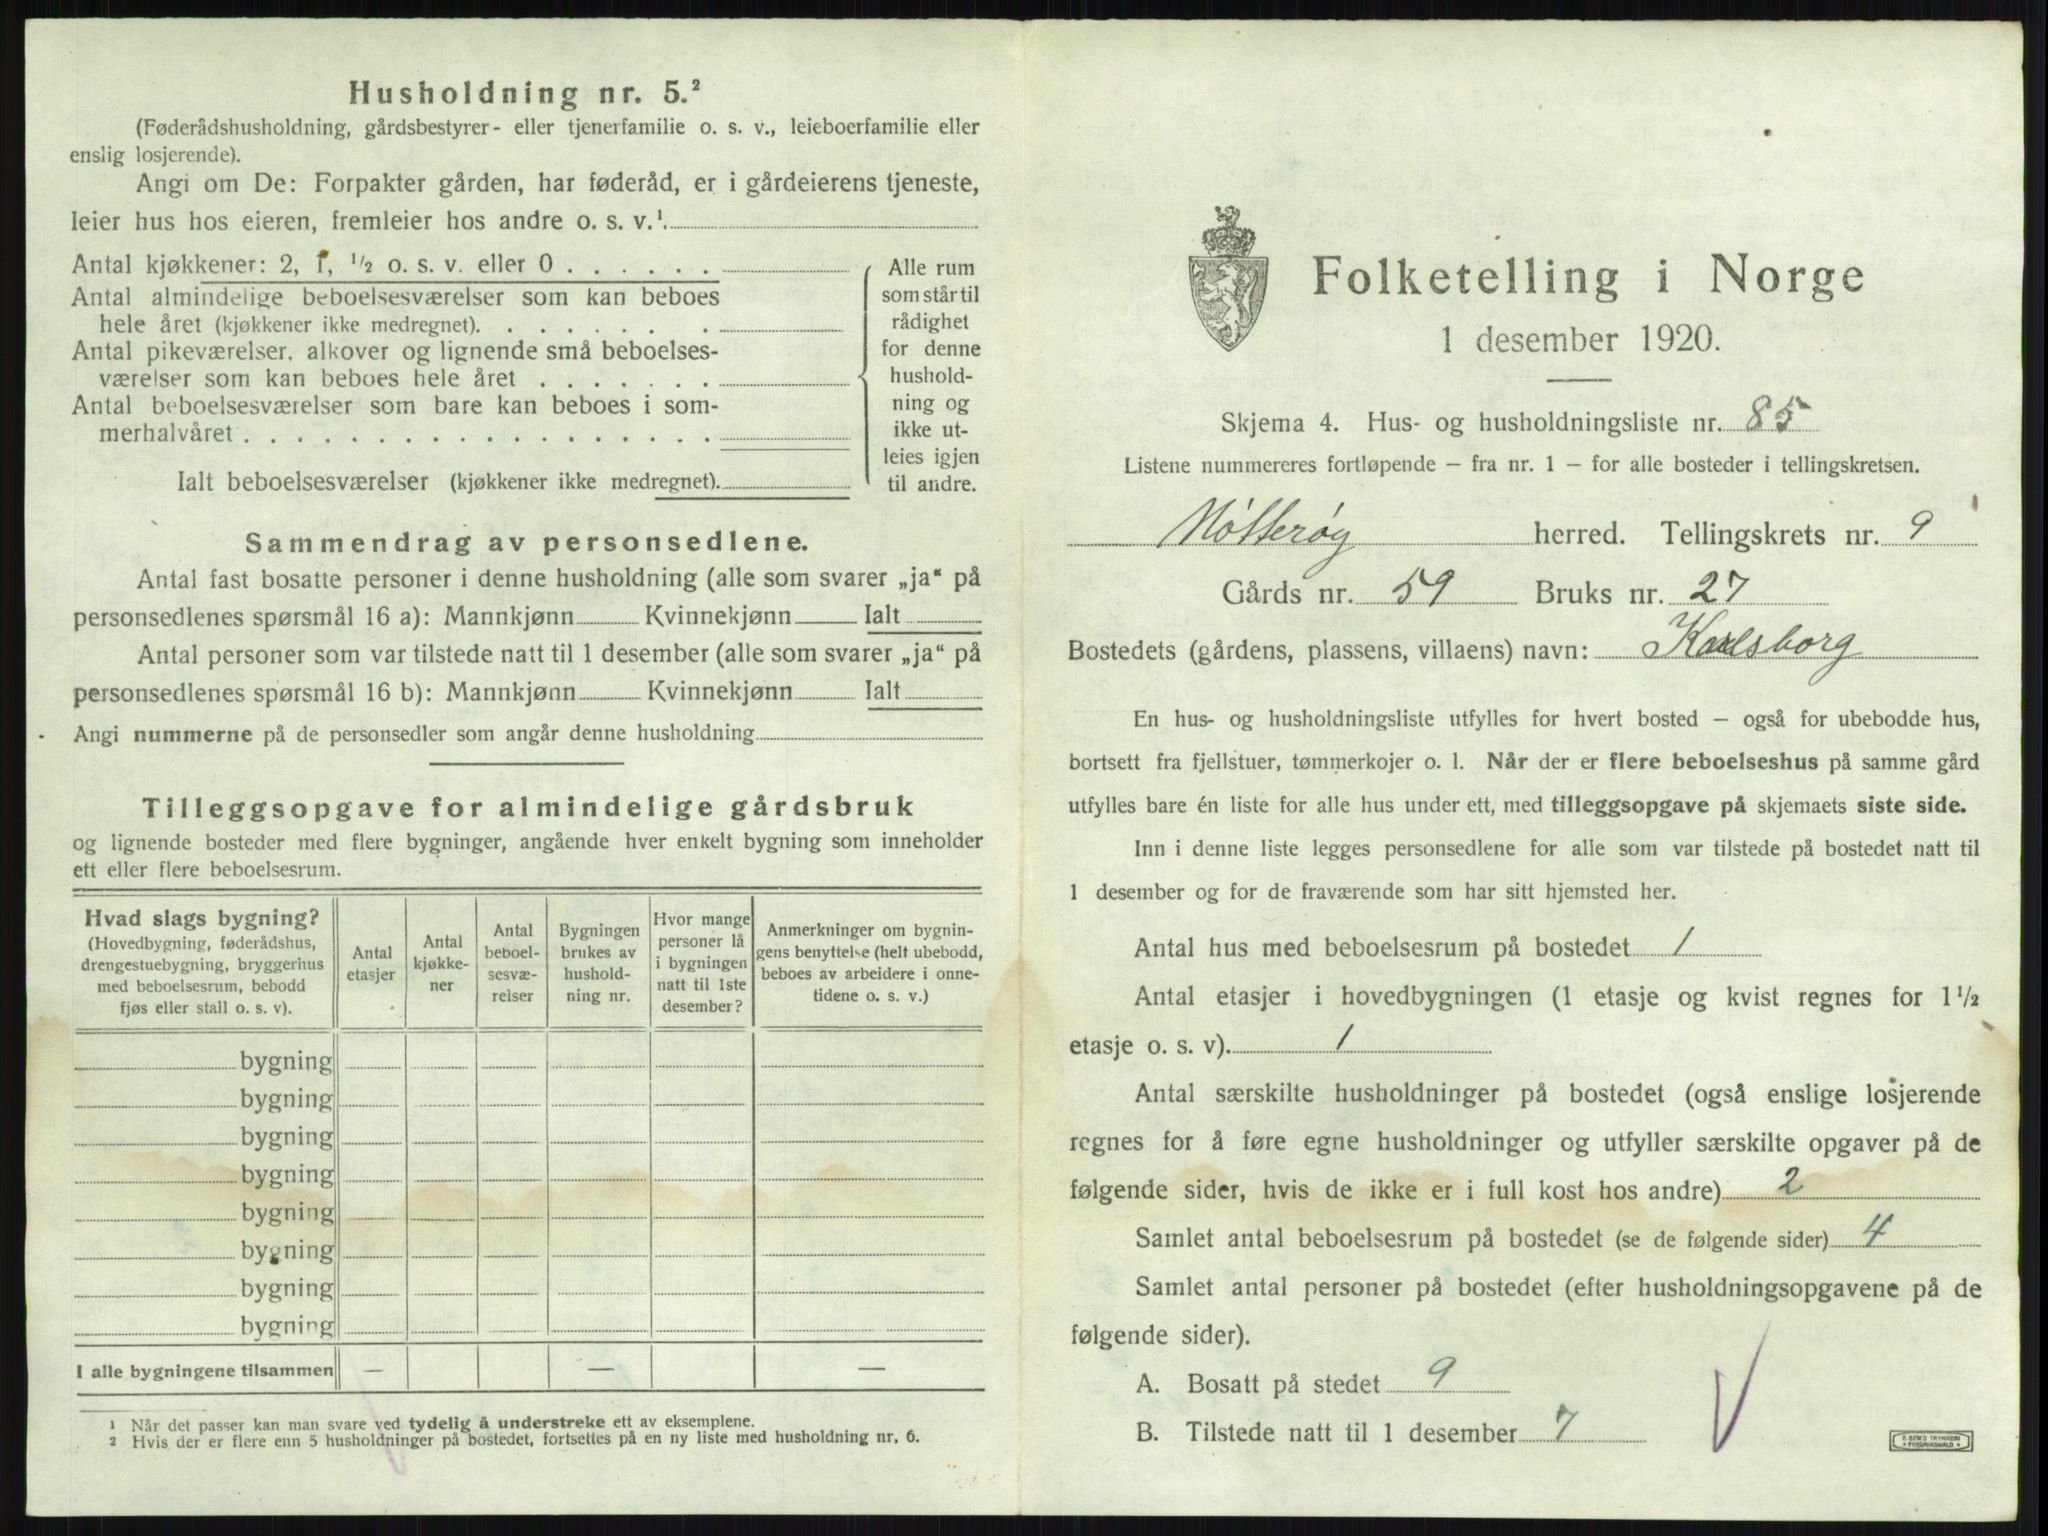 Husholdning nr. 5.²
(Føderådshusholdning, gårdsbestyrer- eller tjenerfamilie o. s. v., leieboerfamilie eller
enslig losjerende).
Angi om De: Forpakter gården, har føderåd, er i gårdeierens tjeneste,
leier hus hos eieren, fremleier hos andre o. s. v.¹.
Antal kjøkkener: 2, 1, ½ o. s. v. eller 0 . . . . . .
Antal almindelige beboelsesværelser som kan beboes
hele året (kjøkkener ikke medregnet). . . . . . . .
Antal pikeværelser, alkover og lignende små beboelses-
værelser som kan beboes hele året . . . . . . .
Antal beboelsesværelser som bare kan beboes i som-
merhalvåret . . . . . . . . . . . . . . . . . .
Ialt beboelsesværelser (kjøkkener ikke medregnet).
Alle rum
som står til
rådighet
for denne
hushold-
ning og
ikke ut-
leies igjen
til andre.
Sammendrag av personsedlene.
Antal fast bosatte personer i denne husholdning (alle som svarer „ja“ på
personsedlenes spørsmål 16 a): Mannkjønn Kvinnekjønn Ialt
Antal personer som var tilstede natt til 1 desember (alle som svarer „ja“ på
personsedlenes spørsmål 16 b): Mannkjønn Kvinnekjønn Ialt
Angi nummerne på de personsedler som angår denne husholdning
Tilleggsopgave for almindelige gårdsbruk
og lignende bosteder med flere bygninger, angående hver enkelt bygning som inneholder
ett eller flere beboelsesrum.
Hvad slags bygning?
(Hovedbygning, føderådshus,
drengestuebygning, bryggerhus
med beboelsesrum, bebodd
fjøs eller stall o. s. v).
Antal
etasjer
Antal
kjøkke-
ner
Antal
beboel-
sesvæ-
relser
Bygningen
brukes av
hushold-
ning nr.
Hvor mange
personer lå
i bygningen
natt til 1ste
desember?
Anmerkninger om bygnin-
gens benyttelse (helt ubebodd,
beboes av arbeidere i onne-
tidene o. s. v.)
bygning
bygning
bygning
bygning
bygning
bygning
bygning
bygning
I alle bygningene tilsammen — — —
¹ Når det passer kan man svare ved tydelig å understreke ett av eksemplene.
² Hvis der er flere enn 5 husholdninger på bostedet, fortsettes på en ny liste med husholdning nr. 6.
Folketelling i Norge
1 desember 1920.
Skjema 4. Hus- og husholdningsliste nr. 85
Listene nummereres fortløpende – fra nr. 1 – for alle bosteder i tellingskretsen.
Nøtterøy herred. Tellingskrets nr. 9
Gårds nr. 59 Bruks nr. 27
Bostedets (gårdens, plassens, villaens) navn: Karlsborg
En hus- og husholdningsliste utfylles for hvert bosted – også for ubebodde hus,
bortsett fra fjellstuer, tømmerkojer o. l. Når der er flere beboelseshus på samme gård
utfylles bare én liste for alle hus under ett, med tilleggsopgave på skjemaets siste side.
Inn i denne liste legges personsedlene for alle som var tilstede på bostedet natt til
1 desember og for de fraværende som har sitt hjemsted her.
Antal hus med beboelsesrum på bostedet 1
Antal etasjer i hovedbygningen (1 etasje og kvist regnes for 1 ½
etasje o. s. v). 1
Antal særskilte husholdninger på bostedet (også enslige losjerende
regnes for å føre egne husholdninger og utfyller særskilte opgaver på de
følgende sider, hvis de ikke er i full kost hos andre) 2
Samlet antal beboelsesrum på bostedet (se de følgende sider) 4
Samlet antal personer på bostedet (efter husholdningsopgavene på de
følgende sider).
A. Bosatt på stedet 9
B. Tilstede natt til 1 desember 7